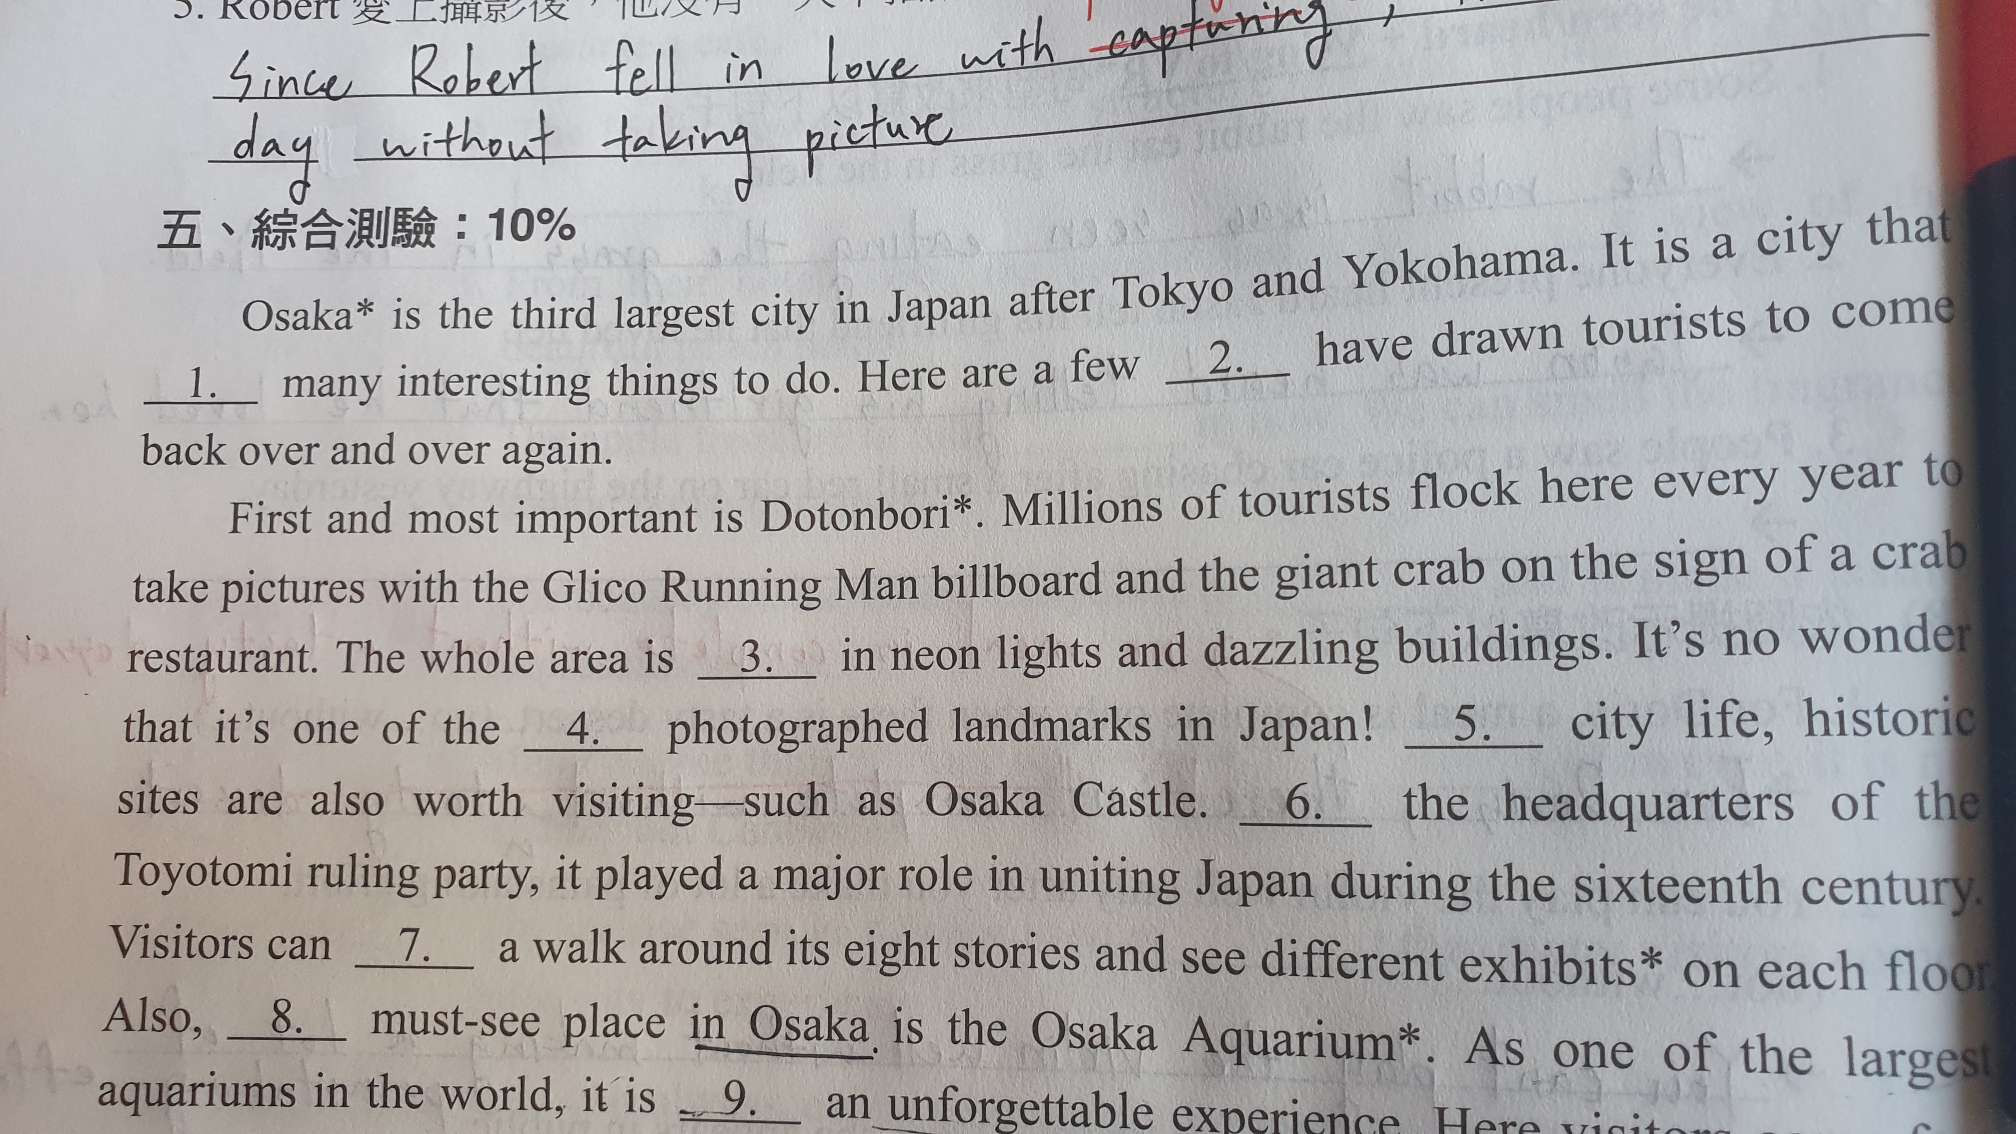 5. Robert 愛上攝影後，他沒有一天
Since Robert fell in love with capturing,
day without taking picture
五、綜合測驗：10%
Osaka* is the third largest city in Japan after Tokyo and Yokohama. It is a city that
1. many interesting things to do. Here are a few 2. have drawn tourists to come
back over and over again.
First and most important is Dotonbori*. Millions of tourists flock here every year to
take pictures with the Glico Running Man billboard and the giant crab on the sign of a crab
restaurant. The whole area is 3. in neon lights and dazzling buildings. It's no wonder
that it's one of the 4. photographed landmarks in Japan! 5. city life, historic
sites are also worth visiting—such as Osaka Castle. 6. the headquarters of the
Toyotomi ruling party, it played a major role in uniting Japan during the sixteenth century.
Visitors can 7. a walk around its eight stories and see different exhibits* on each floor
Also, 8. must-see place in Osaka is the Osaka Aquarium*. As one of the largest
aquariums in the world, it is 9. an unforgettable experience. Here